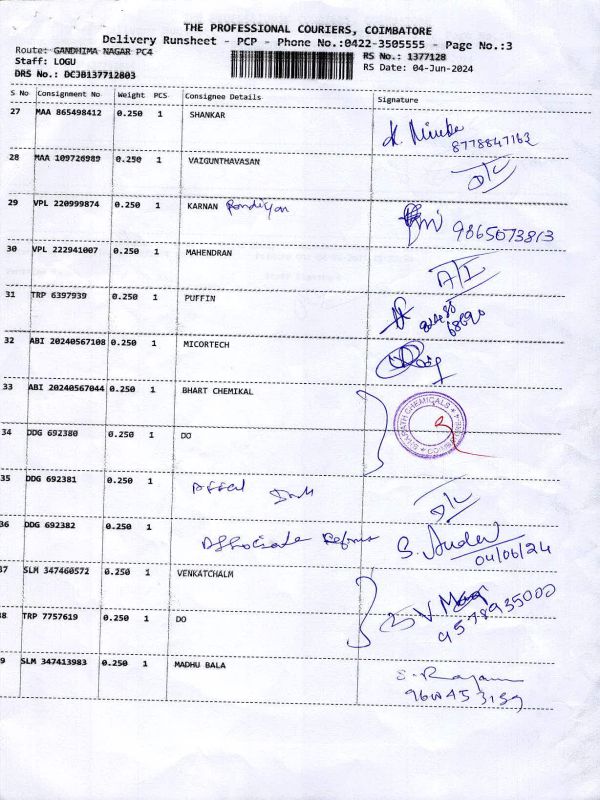 THE PROFESSIONAL COURIERS, COIMBATORE
Delivery Runsheet - PCP - Phone No.:0422-3505555 - Page No.:3
Route: GANDHIMA NAGAR PC4
RS No.: 1377128
Staff: LOGU
RS Date: 04-Jun-2024
DRS No.: DCJB137712803
S No Consignment No Weight PCS Consignee Details Signature
27 MAA 865498412 0.250 1 SHANKAR
8778847162
28 MAA 109726989 0.250 1 VAIGUNTHAVASAN
D/L
29 VPL 220999874 0.250 1 KARNAN
9865073813
30 VPL 222941007 0.250 1 MAHENDRAN
A/I
31 TRP 6397939 0.250 1 PUFFIN
32 ABI 20240567108 0.250 1 MICORTECH
33 ABI 20240567044 0.250 1 BHART CHEMIKAL
34 DDG 692380 0.250 1 DO
35 DDG 692381 0.250 1
D/L
36 DDG 692382 0.250 1
04/06/24
37 SLM 347460572 0.250 1 VENKATCHALM
9578935000
38 TRP 7757619 0.250 1 DO
39 SLM 347413983 0.250 1 MADHU BALA